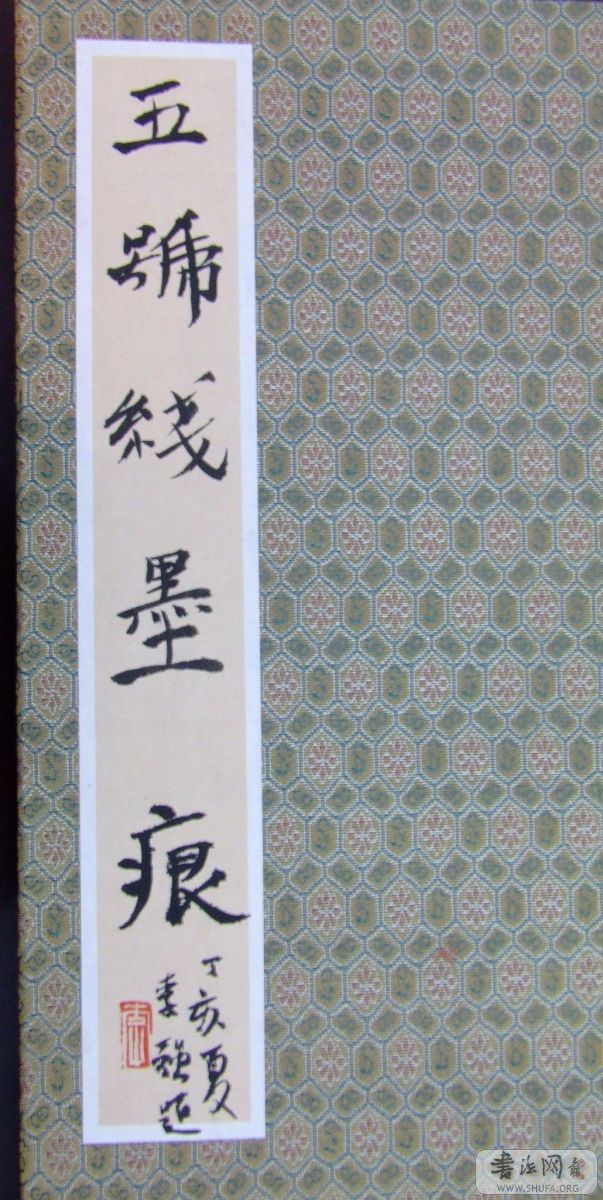 五號綫墨痕
丁亥夏
李強題
書法网
WWW.SHUFA.ORG